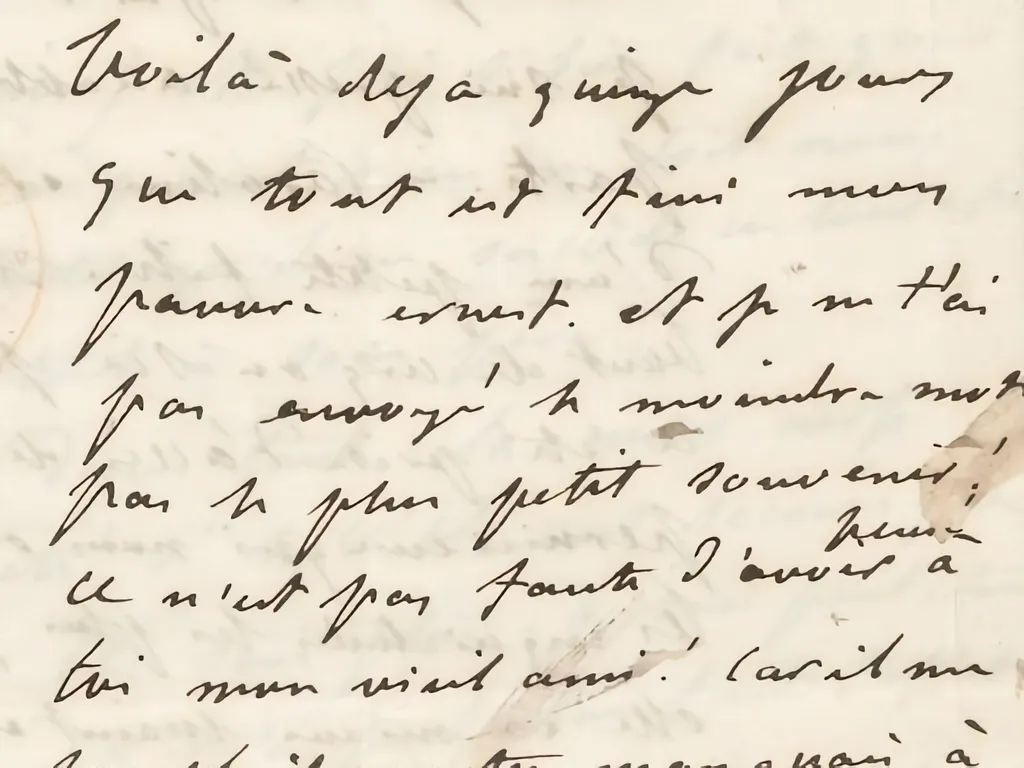 Voilà deja quinze jours
que tout est fini mon
pauvre ernest. et je ne t'ai
pas envoyé le moindre mot
pas le plus petit souvenir!
pensé
ce n'est pas faute d'avoir à
toi mon vieil ami! Car il me
manquais à